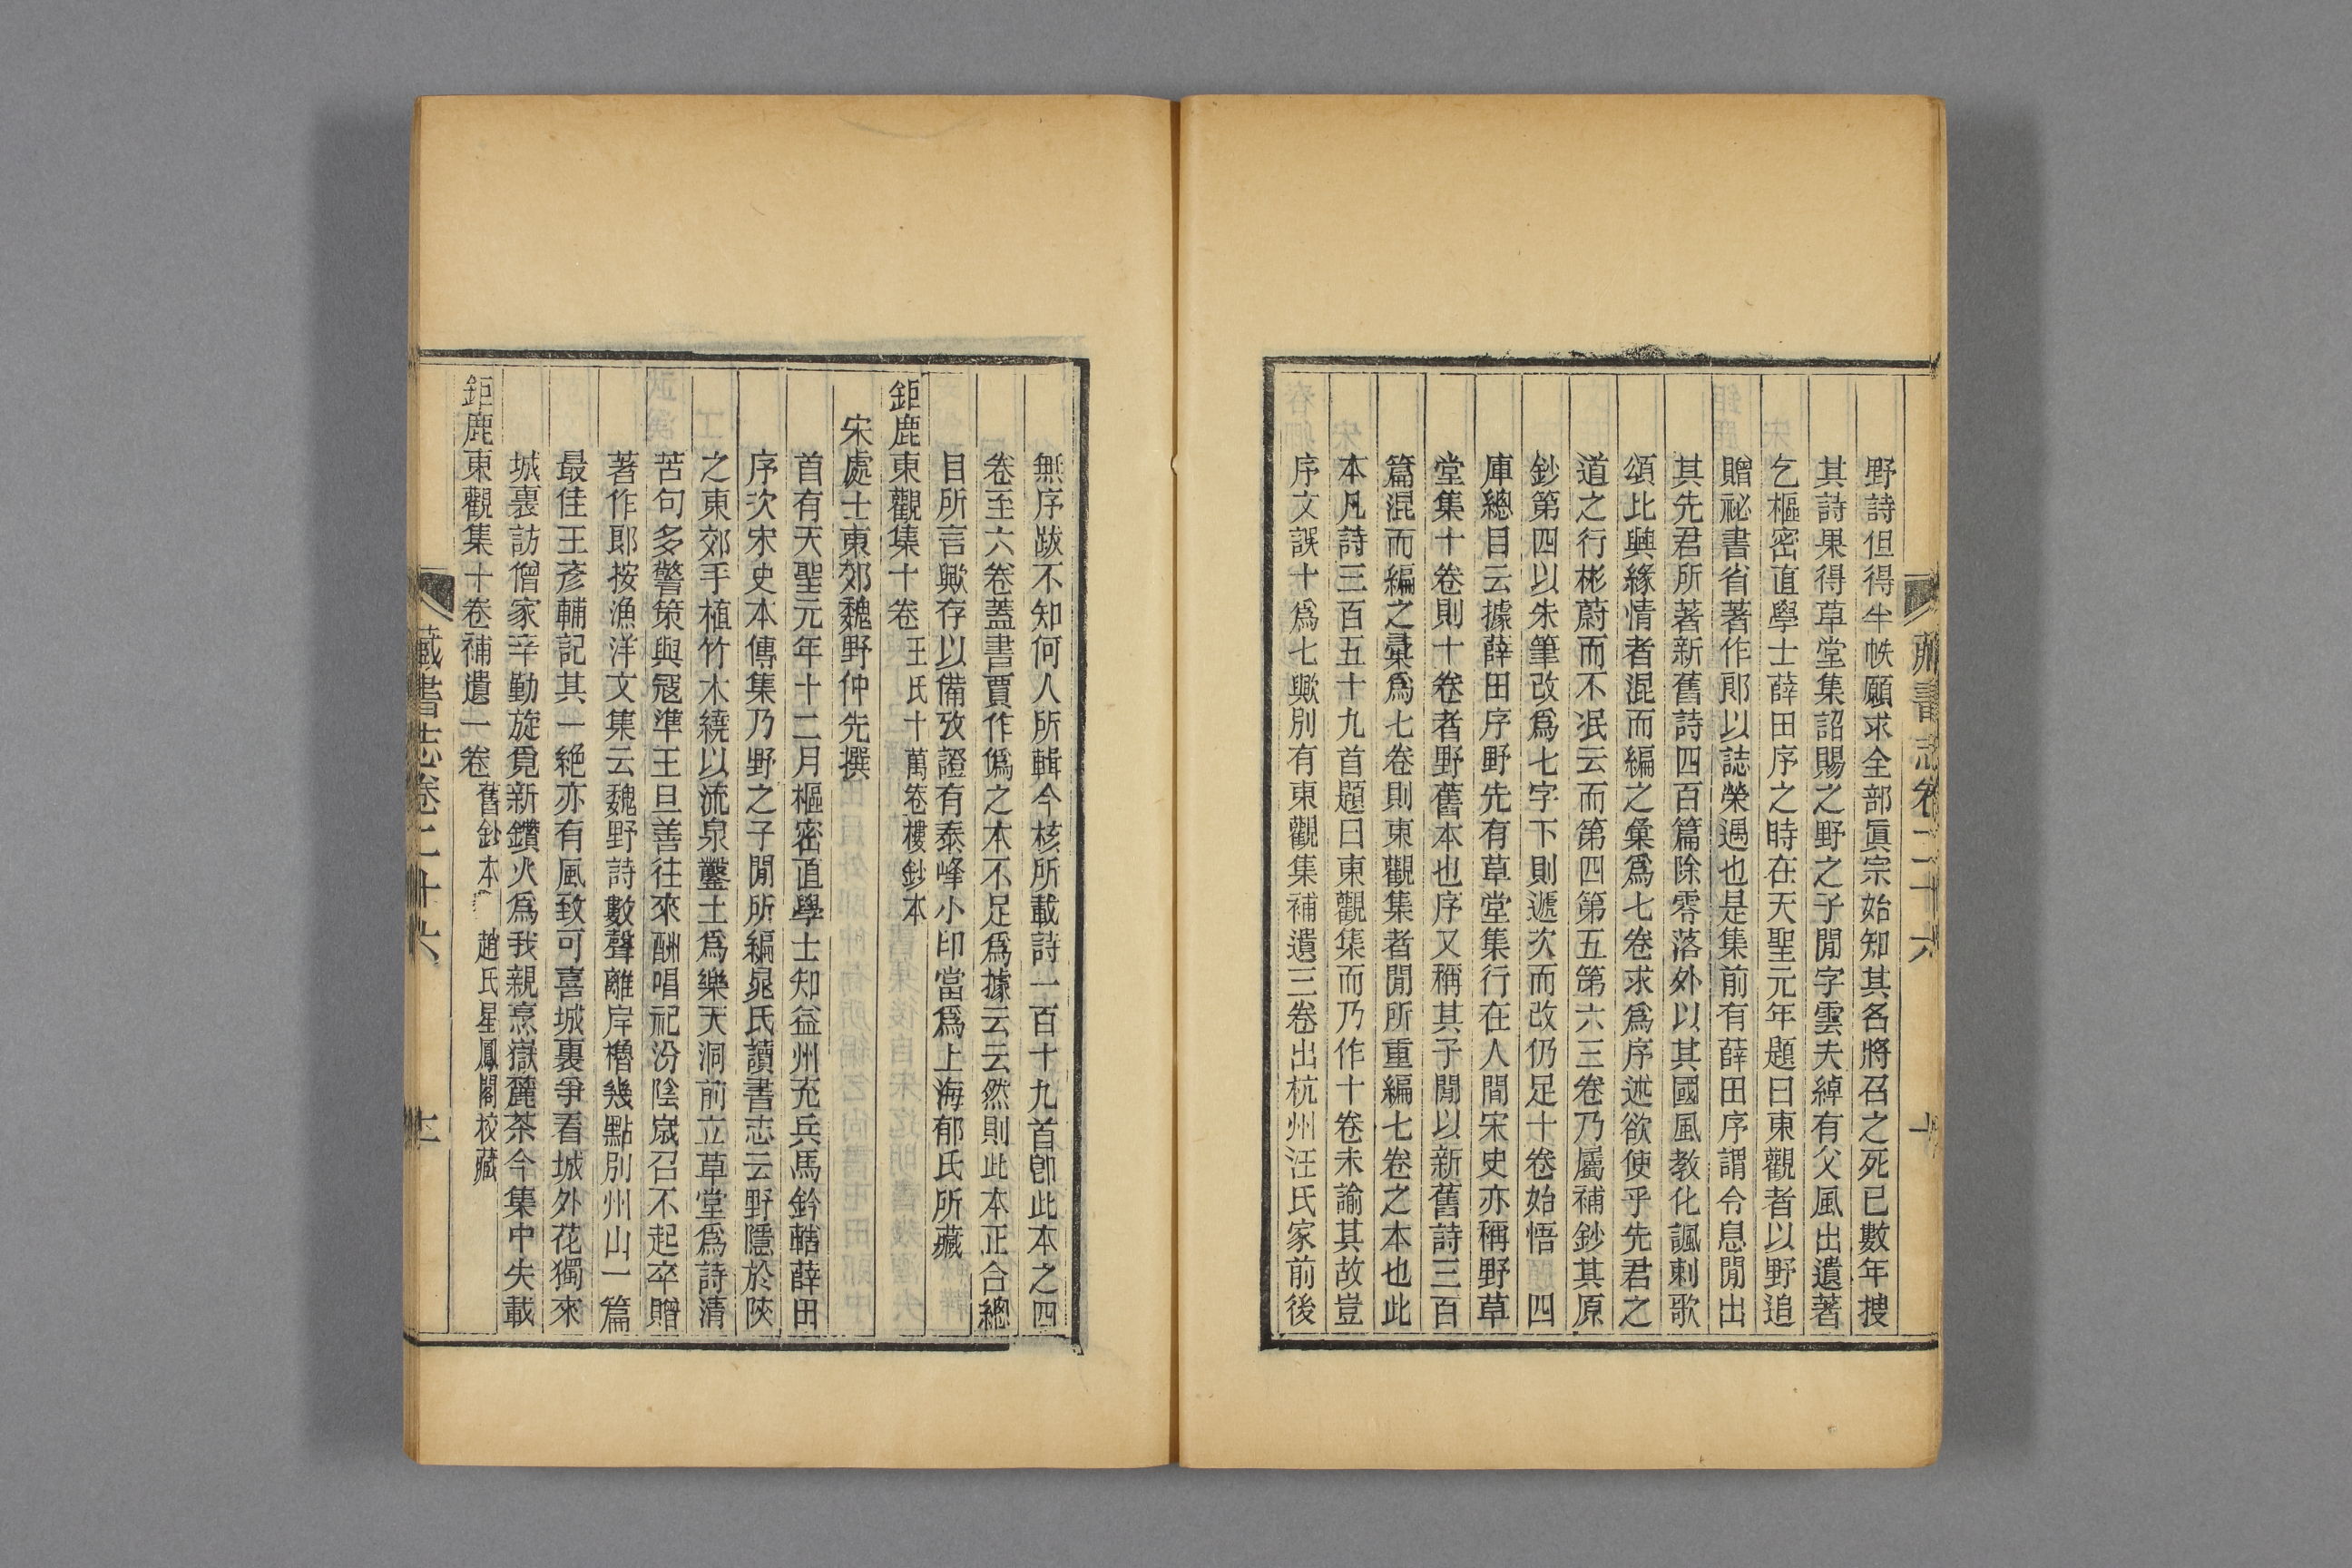 野詩但得半帙願求全部眞宗始知其名將召之死已數年搜
其詩果得草堂集詔賜之野之子閒字雲夫綽有父風出遺著
乞樞密直學士薛田序之時在天聖元年題曰東觀者以野追
贈祕書省著作郎以誌榮遇也是集前有薛田序謂令息閒出
其先君所著新舊詩四百篇除零落外以其國風教化諷刺歌
頌比興緣情者混而編之彙爲七卷求爲序述欲使乎先君之
道之行彬蔚而不泯云而第四第五第六三卷乃屬補鈔其原
鈔第四以朱筆改爲七字下則遞次而改仍足十卷始悟四
庫總目云據薛田序野先有草堂集行在人間宋史亦稱野草
堂集十卷則十卷者野舊本也序又稱其子閒以新舊詩三百
篇混而編之彙爲七卷則東觀集者閒所重編七卷之本也此
本凡詩三百五十九首題曰東觀集而乃作十卷未諭其故豈
序文誤十爲七歟別有東觀集補遺三卷出杭州汪氏家前後
無序跋不知何人所輯今核所載詩一百十九首卽此本之四
卷至六卷蓋書賈作僞之本不足爲據云云然則此本正合總
目所言歟存以備攷證有泰峰小印當爲上海郁氏所藏
鉅鹿東觀集十卷 王氏十萬卷樓鈔本
宋處士東郊魏野仲先撰
首有天聖元年十二月樞密直學士知益州充兵馬鈐轄薛田
序次宋史本傳集乃野之子閒所編晁氏讀書志云野隱於陝
之東郊手植竹木繞以流泉鑿土爲樂天洞前立草堂爲詩清
苦句多警策與寇準王旦善往來酬唱祀汾陰歲召不起卒贈
著作郎按漁洋文集云魏野詩數聲離岸櫓幾點別州山一篇
最佳王彥輔記其一絕亦有風致可喜城裏爭看城外花獨來
城裏訪僧家辛勤旋覓新鑽火爲我親烹嶽麓茶今集中失載
鉅鹿東觀集十卷補遺一卷 舊鈔本 趙氏星鳳閣校藏
藏書志卷二十六